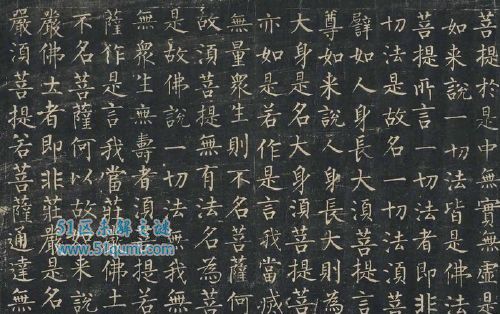 菩提於是中無實無虛是
如来說一切法皆是佛法
菩提所言一切法者即非
切法是故名一切法須菩
譬如人身長大須菩提言
尊如来說人身長大則為
大身是名大身須菩提菩
亦如是若作是言我當滅
無量衆生則不名菩薩何
故須菩提無有法名為菩
是故佛說一切法無我無
無衆生無壽者須菩提若
薩作是言我當莊嚴佛土
不名菩薩何以故如来說
嚴佛土者即非莊嚴是名
嚴須菩提若菩薩通達無
51区未解之谜
www.51qumi.com